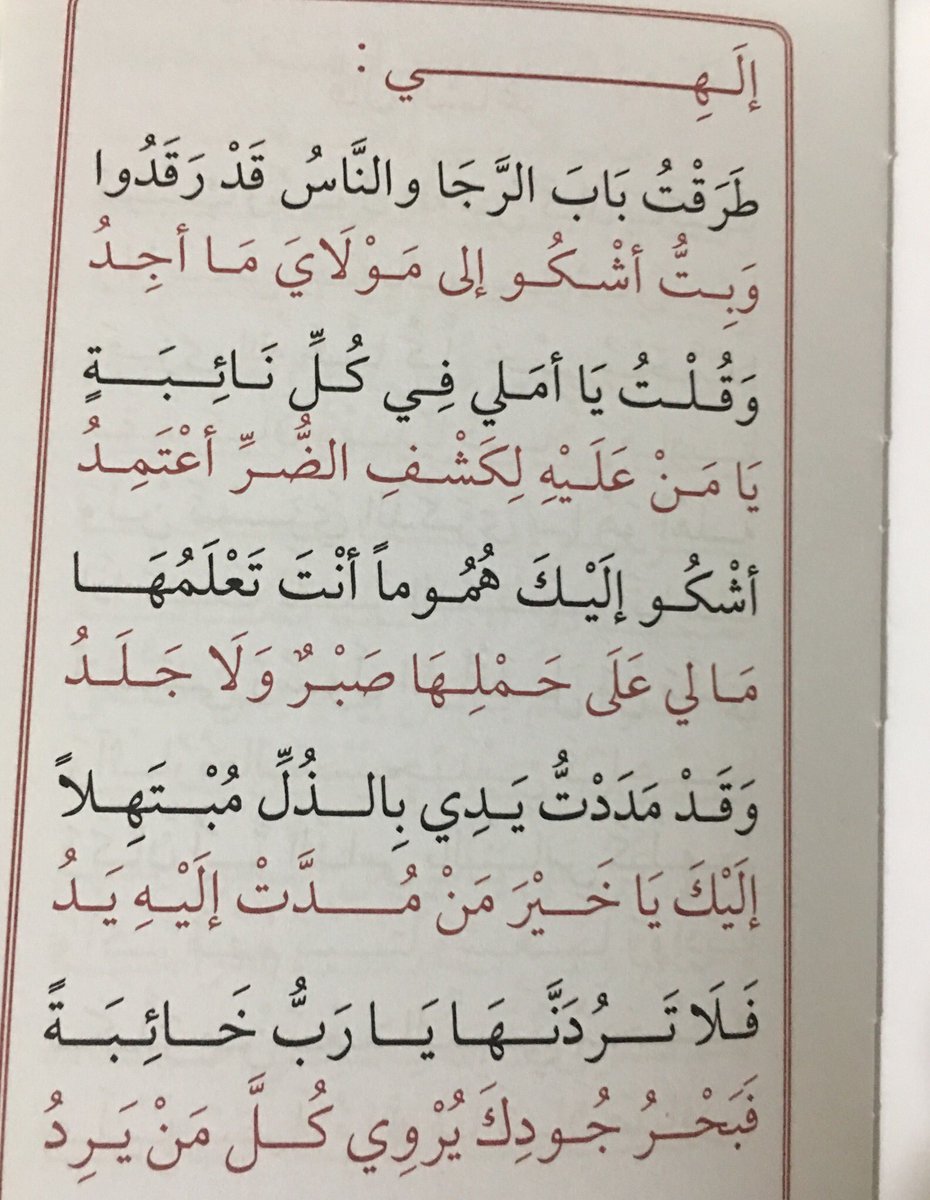 إلَهِي :
طَرَقْتُ بَابَ الرَّجَا والنَّاسُ قَدْ رَقَدُوا
وَبِتُّ أشْكُو إلى مَوْلَايَ مَا أجِدُ
وَقُلْتُ يَا أمَلي فِي كُلِّ نَائِبَةٍ
يَا مَنْ عَلَيْهِ لِكَشْفِ الضُّرِّ أعْتَمِدُ
أشْكُو إلَيْكَ هُمُوماً أنْتَ تَعْلَمُهَا
مَا لي عَلَى حَمْلِهَا صَبْرٌ وَلَا جَلَدُ
وَقَدْ مَدَدْتُّ يَدِي بِالذُلِّ مُبْتَهِلاً
إلَيْكَ يَا خَيْرَ مَنْ مُدَّتْ إلَيْهِ يَدُ
فَلَا تَرُدَنَّهَا يَا رَبُّ خَائِبَةً
فَبَحْرُ جُودِكَ يُرْوِي كُلَّ مَنْ يَرِدُ